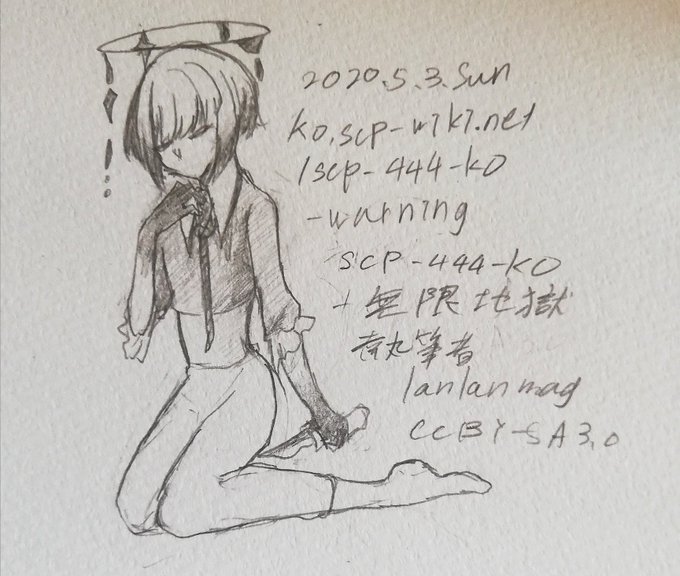 2020.5.3.Sun
ko.scp-wiki.net
/scp-444-ko
-warning
SCP-444-KO
+無限地獄
執筆者
lanlanmag
CCBY-SA3.0